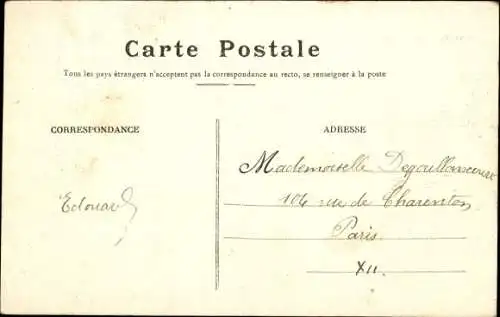 Carte Postale
Tous les pays étrangers n'acceptent pas la correspondance au recto, se renseigner à la poste
CORRESPONDANCE
ADRESSE
Mademoiselle
104 rue de Charenton
Edouard
Paris
XII.